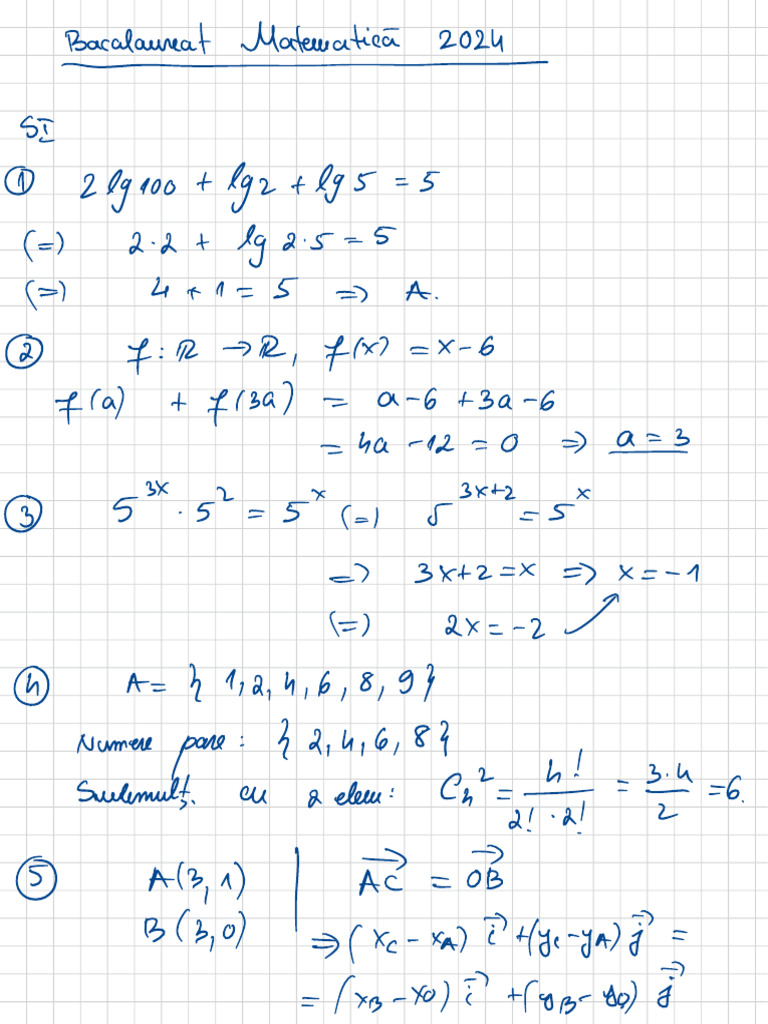 Bacalaureat Matematică 2024
SI
① 2 lg 100 + lg 2 + lg 5 = 5
(=) 2·2 + lg 2·5 = 5
(=) 4 + 1 = 5 => A.
② f : ℝ → ℝ, f(x) = x - 6
f(a) + f(3a) = a - 6 + 3a - 6
= 4a - 12 = 0 => a = 3
③ 5^{3x} · 5^2 = 5^x (=) 5^{3x+2} = 5^x
=> 3x + 2 = x => x = -1
(=) 2x = -2
④ A = {1, 2, 4, 6, 8, 9}
Numere pare: {2, 4, 6, 8}
Submulț. cu 2 elem: C_4^2 = 4!/(2!·2!) = 3·4/2 = 6.
⑤ A(3, 1) | \vec{AC} = \vec{OB}
B(3, 0)
=> (x_C - x_A) \vec{i} + (y_C - y_A) \vec{j} =
= (x_B - x_O) \vec{i} + (y_B - y_O) \vec{j}